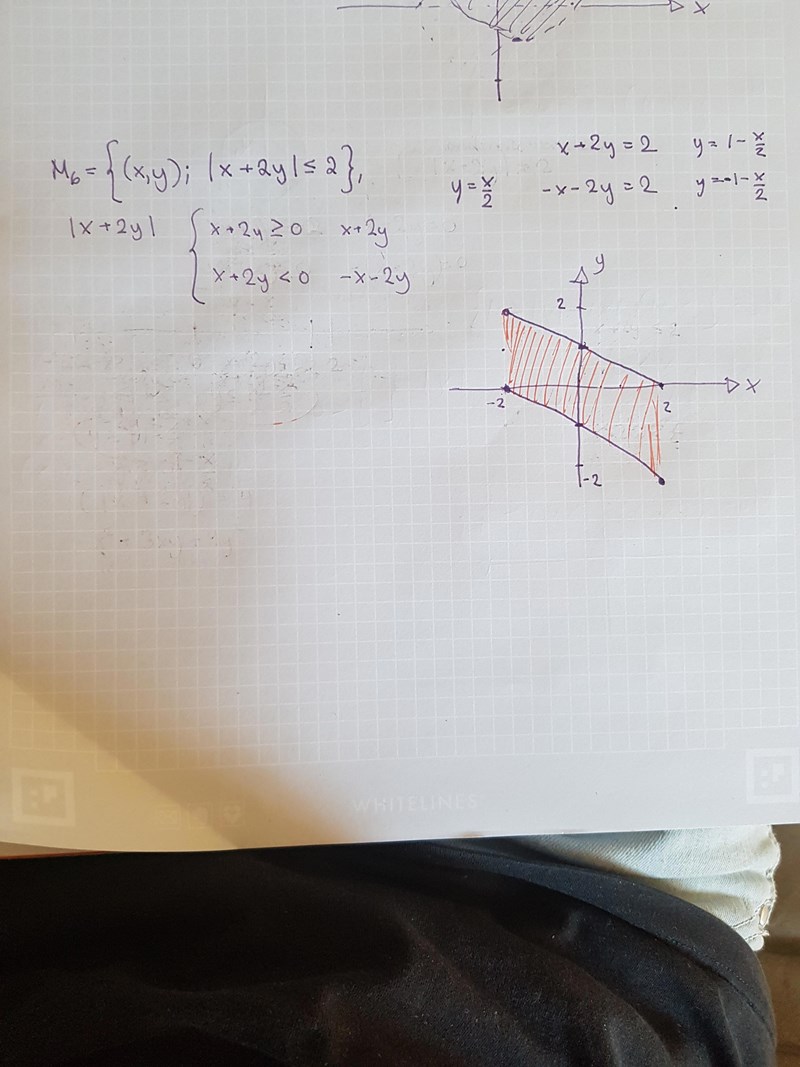 x
M₆ = {(x,y); |x+2y| ≤ 2},
x+2y = 2 y = 1 - x/2
y = x/2 -x-2y = 2 y = -1 - x/2
|x+2y| { x+2y ≥ 0 x+2y
x+2y < 0 -x-2y
y
2
x
-2 2
-2
WHITELINES